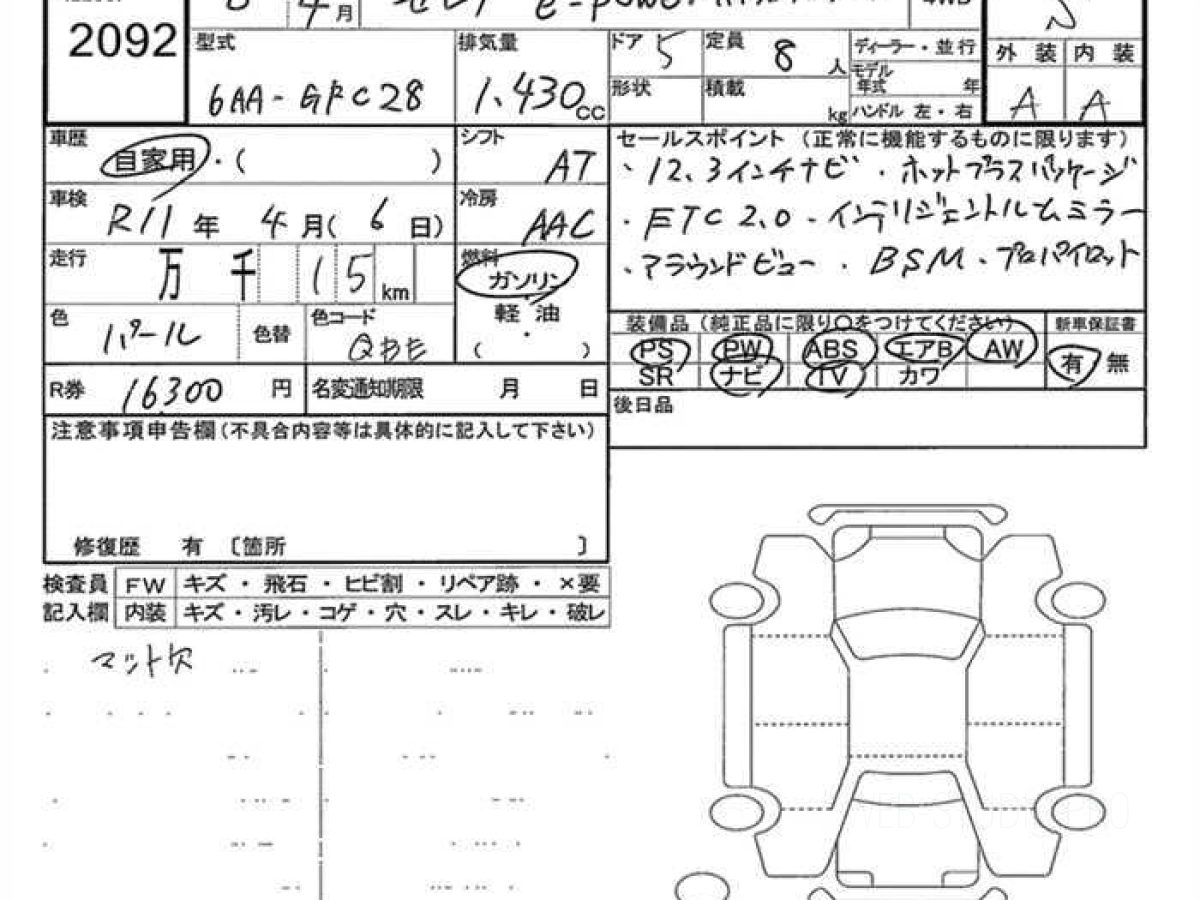 4月 セレナ e-POWER 4WD S
2092
型式 排気量 ドア 5 定員 8 人 ディーラー・並行 外装 内装
6AA-GFC28 1,430 cc 形状 積載 kg モデル年式 年 A A
ハンドル 左・右
車歴 自家用・( ) シフト AT セールスポイント (正常に機能するものに限ります)
車検 R11年 4月(6日) 冷房 AAC ・12.3インチナビ ・ホットプラスパッケージ
・ETC2.0 ・インテリジェントルームミラー
走行 万 千 15 km 燃料 ガソリン ・アラウンドビュー ・BSM ・プロパイロット
軽・油
( )
色 パール 色替 色コード QBE 装備品 (純正品に限り○をつけてください) 新車保証書
PS PW ABS エアB AW 有 無
SR ナビ TV カワ
R券 16300 円 名変通知期限 月 日 後日品
注意事項申告欄(不具合内容等は具体的に記入して下さい)
修復歴 有 〔箇所 〕
検査員 FW キズ・飛石・ヒビ割・リペア跡・×要
記入欄 内装 キズ・汚レ・コゲ・穴・スレ・キレ・破レ
マット欠